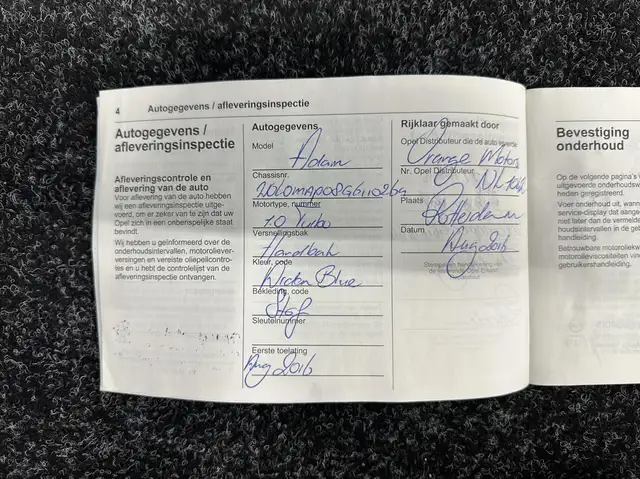 4 Autogegevens / afleveringsinspectie
Autogegevens /
afleveringsinspectie
Afleveringscontrole en
aflevering van de auto
Voor aflevering van de auto hebben
wij een afleveringsinspectie uitge-
voerd, om er zeker van te zijn dat uw
Opel zich in een onberispelijke staat
bevindt.
Wij hebben u geïnformeerd over de
onderhoudsintervallen, motoroliever-
versingen en vereiste oliepeilcontro-
les en u hebt de controlelijst van de
afleveringsinspectie ontvangen.
Autogegevens
Model
Adam
Chassisnr.
Motortype, nummer
1.0 Turbo
Versnellingsbak
Handbak
Kleur, code
Blue
Bekleding, code
Stof
Sleutelnummer
Eerste toelating
Aug 2016
Rijklaar gemaakt door
Opel Distributeur die de auto
Orange Motors
Nr. Opel Distributeur
Plaats
Rotterdam
Datum
Aug 2016
Bevestiging
onderhoud
Op de volgende pagina's
uitgevoerde onderhouds
heden geregistreerd.
Voer onderhoud uit, wann
service-display dat aange
niet later dan de vermelde
houdsintervallen in de geb
handleiding.
Betrouwbare motorolie
viscositeiten vindt u in de
gebruikershandleiding.